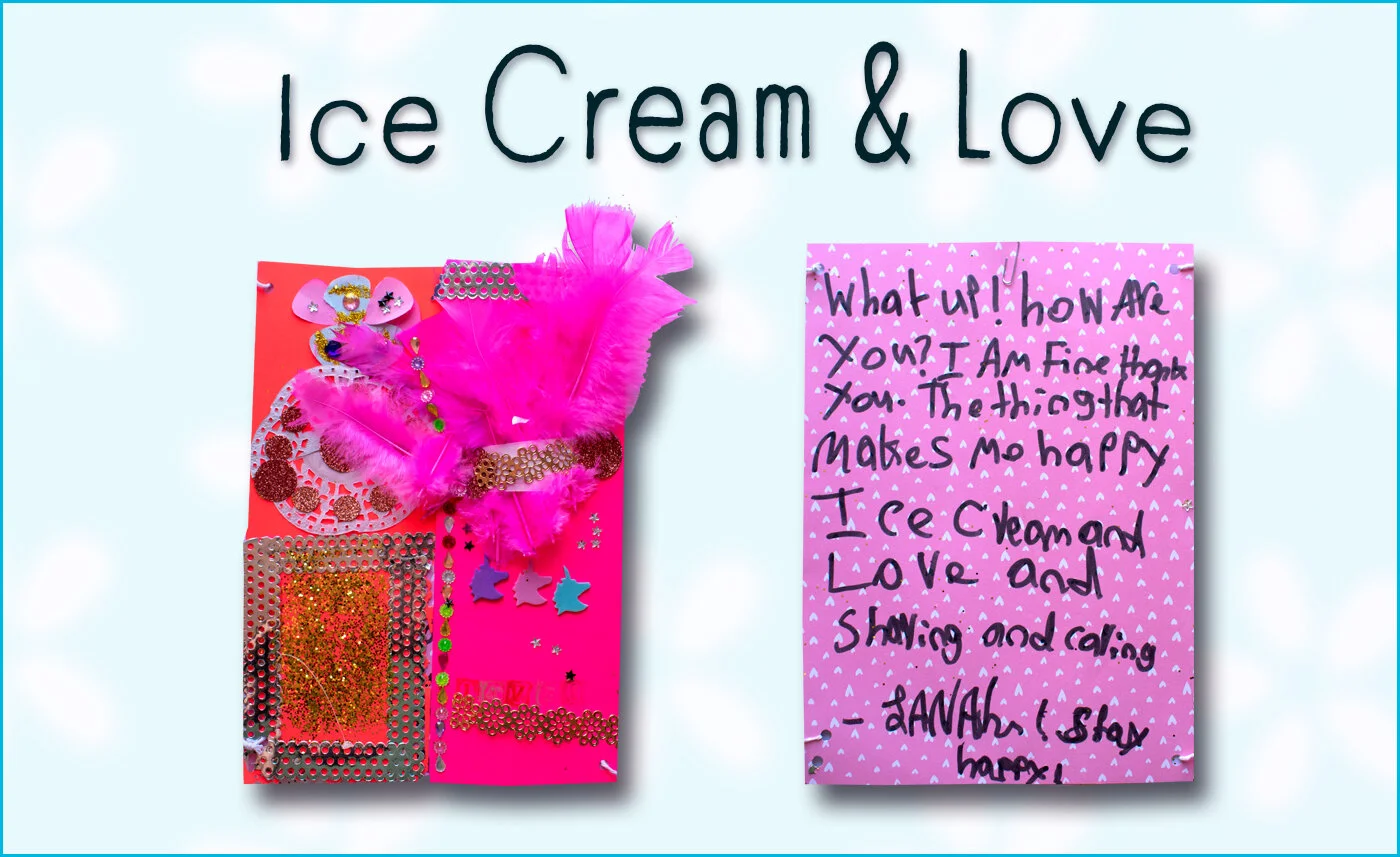 Ice Cream & Love
What up! how Are
You? I AM Fine thanks
You. The thing that
Makes Me happy
Ice Cream and
Love and
Sharing and caring
! Stay
happy!